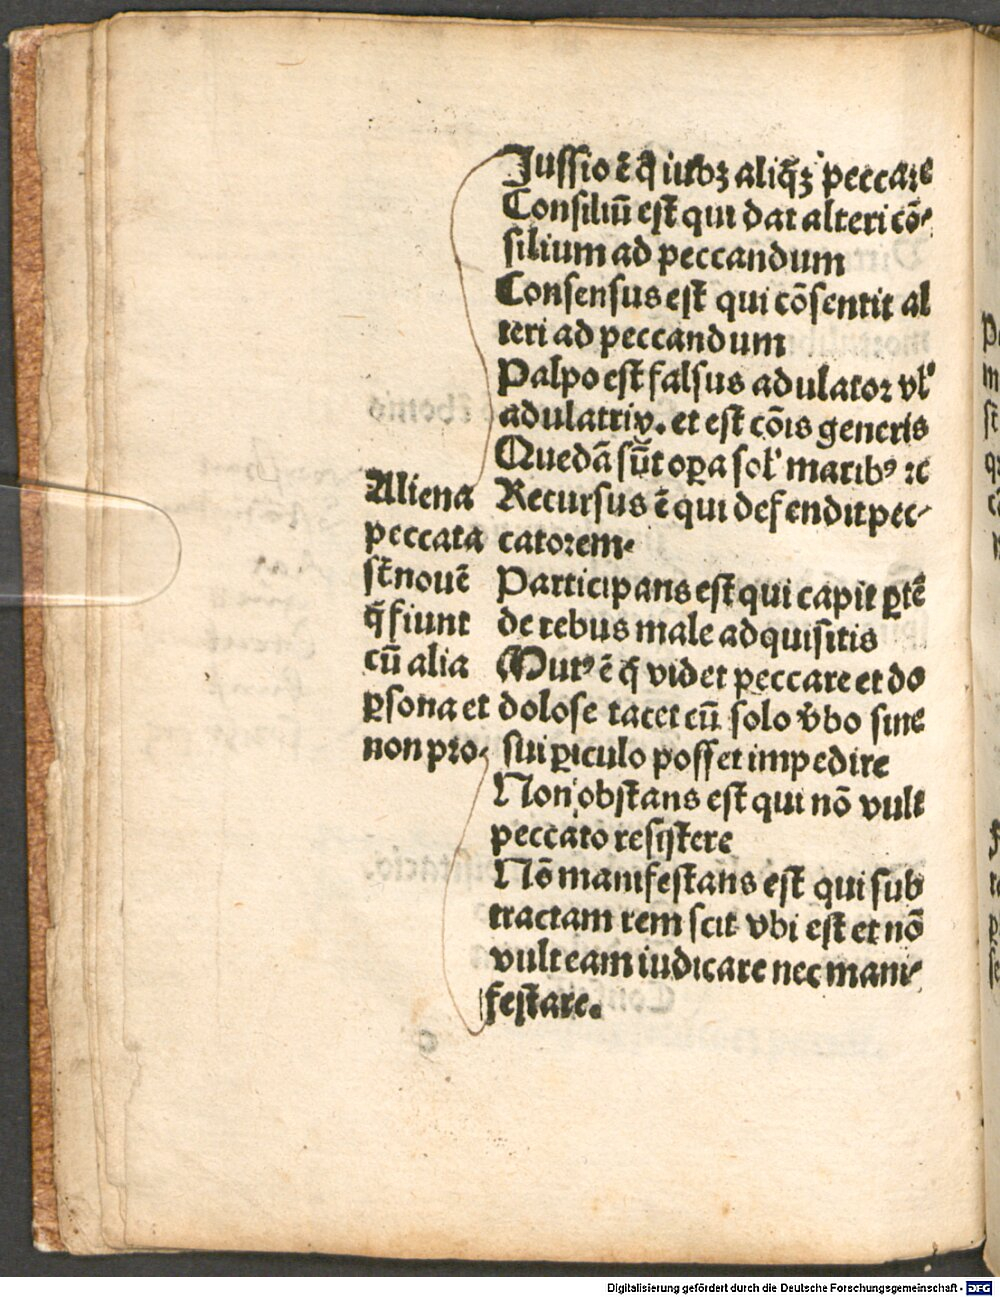 Jussio ē q̄ iubꝫ aliq̄ꝫ peccare
Consiliū est qui dat alteri cō⸗
silium ad peccandum
Consensus est qui cōsentit al
teri ad peccandum
Palpo est falsus adulator vl'
adulatrix. et est cōis generis
Quedā sūt oꝑa sol' maribꝰ ꝛc
Recursus ē qui defendit pec⸗
catorem.
Participans est qui capit ꝑtē
de rebus male adquisitis
Mutꝰ ē q̄ videt peccare et do
dolose tacet cū solo v̄bo sine
sui ꝑiculo posset impedire
Non obstans est qui nō vult
peccato resistere
Nō manifestans est qui sub
tractam rem scit vbi est et nō
vult eam iudicare nec mani⸗
festare.
Aliena
peccata
st̄ nouē
q̄ fiunt
cū alia
ꝑsona et
non pro⸗
Digitalisierung gefördert durch die Deutsche Forschungsgemeinschaft - DFG